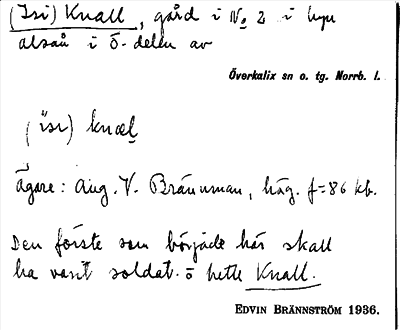 (Isi) Knall, gård i No 2 i byn
alsån i ö-delen av
Överkalix sn o. tg. Norrb. l.
(ísi) knæl
ägare: Aug. V. Brännman, häg. f=86 kb.
Den förste som började här skall
ha varit soldat o hette Knall.
EDVIN BRÄNNSTRÖM 1936.